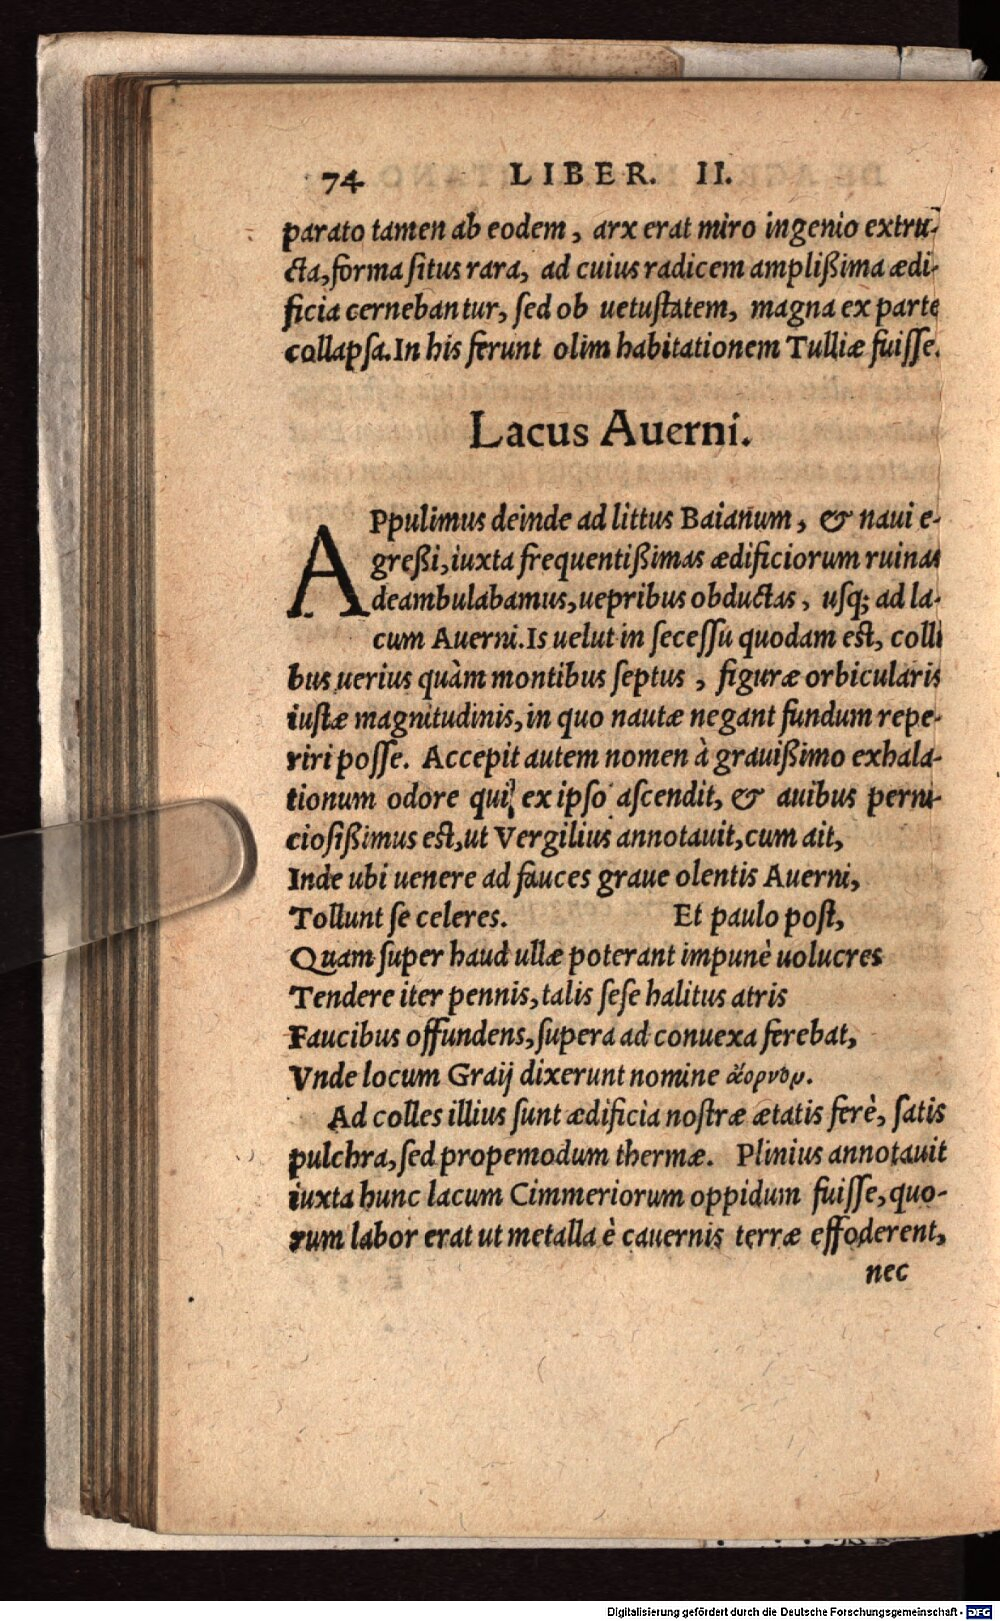 74 LIBER. II.
parato tamen ab eodem, arx erat miro ingenio extru-
cta, forma situs rara, ad cuius radicem amplißima ædi-
ficia cernebantur, sed ob uetustatem, magna ex parte
collapsa. In his ferunt olim habitationem Tulliæ fuisse.
Lacus Auerni.
APpulimus deinde ad littus Baianum, & naui e-
greßi, iuxta frequentißimas ædificiorum ruinas
deambulabamus, uepribus obductas, usq; ad la-
cum Auerni. Is uelut in secessu quodam est, colli
bus uerius quàm montibus septus, figuræ orbicularis
iustæ magnitudinis, in quo nautæ negant fundum repe-
riri posse. Accepit autem nomen à grauißimo exhala-
tionum odore qui ex ipso ascendit, & auibus perni-
ciosißimus est, ut Vergilius annotauit, cum ait,
Inde ubi uenere ad fauces graue olentis Auerni,
Tollunt se celeres. Et paulo post,
Quam super haud ullæ poterant impunè uolucres
Tendere iter pennis, talis sese halitus atris
Faucibus offundens, supera ad conuexa ferebat,
Vnde locum Graij dixerunt nomine ἄορνον.
Ad colles illius sunt ædificia nostræ ætatis ferè, satis
pulchra, sed propemodum thermæ. Plinius annotauit
iuxta hunc lacum Cimmeriorum oppidum fuisse, quo-
rum labor erat ut metalla è cauernis terræ effoderent,
nec
Digitalisierung gefördert durch die Deutsche Forschungsgemeinschaft - DFG